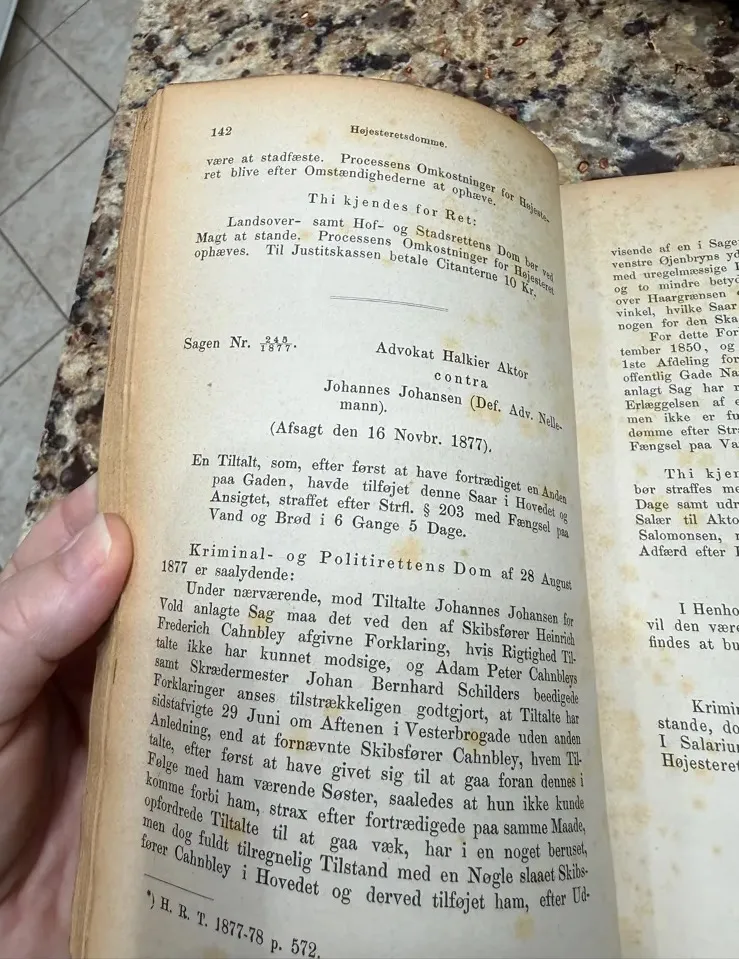 142
Højesteretsdomme.
være at stadfæste. Processens Omkostninger for Højeste-
ret blive efter Omstændighederne at ophæve.
Thi kjendes for Ret:
Landsover- samt Hof- og Stadsrettens Dom bør ved
Magt at stande. Processens Omkostninger for Højesteret
ophæves. Til Justitskassen betale Citanterne 10 Kr.
Sagen Nr. 245/1877.
Advokat Halkier Aktor
contra
Johannes Johansen (Def. Adv. Nelle-
mann).
(Afsagt den 16 Novbr. 1877).
En Tiltalt, som, efter først at have fortrædiget en Anden
paa Gaden, havde tilføjet denne Saar i Hovedet og
Ansigtet, straffet efter Strfl. § 203 med Fængsel paa
Vand og Brød i 6 Gange 5 Dage.
Kriminal- og Politirettens Dom af 28 August
1877 er saalydende:
Under nærværende, mod Tiltalte Johannes Johansen for
Vold anlagte Sag maa det ved den af Skibsfører Heinrich
Frederich Cahnbley afgivne Forklaring, hvis Rigtighed Til-
talte ikke har kunnet modsige, og Adam Peter Cahnbleys
samt Skrædermester Johan Bernhard Schilders beedigede
Forklaringer anses tilstrækkeligen godtgjort, at Tiltalte har
sidstafvigte 29 Juni om Aftenen i Vesterbrogade uden anden
Anledning, end at fornævnte Skibsfører Cahnbley, hvem Til-
talte, efter først at have givet sig til at gaa foran dennes i
Følge med ham værende Søster, saaledes at hun ikke kunde
komme forbi ham, strax efter fortrædigede paa samme Maade,
opfordrede Tiltalte til at gaa væk, har i en noget beruset,
men dog fuldt tilregnelig Tilstand med en Nøgle slaaet Skibs-
fører Cahnbley i Hovedet og derved tilføjet ham, efter Ud-
*) H. R. T. 1877-78 p. 572.
visende af en i Sage
venstre Øjenbryns yd
med uregelmæssige
og to mindre betyd
over Haargrænsen
vinkel, hvilke Saar
nogen for den Ska
For dette For
tember 1850, og
1ste Afdeling for
offentlig Gade Na
anlagt Sag har
Erlæggelsen af e
men ikke er fu
dømme efter Str
Fængsel paa Va
Thi kjen
bør straffes me
Dage samt udr
Salær til Akto
Salomonsen,
Adfærd efter
I Henho
vil den være
findes at bu
Krimin
stande, do
I Salariu
Højesteret